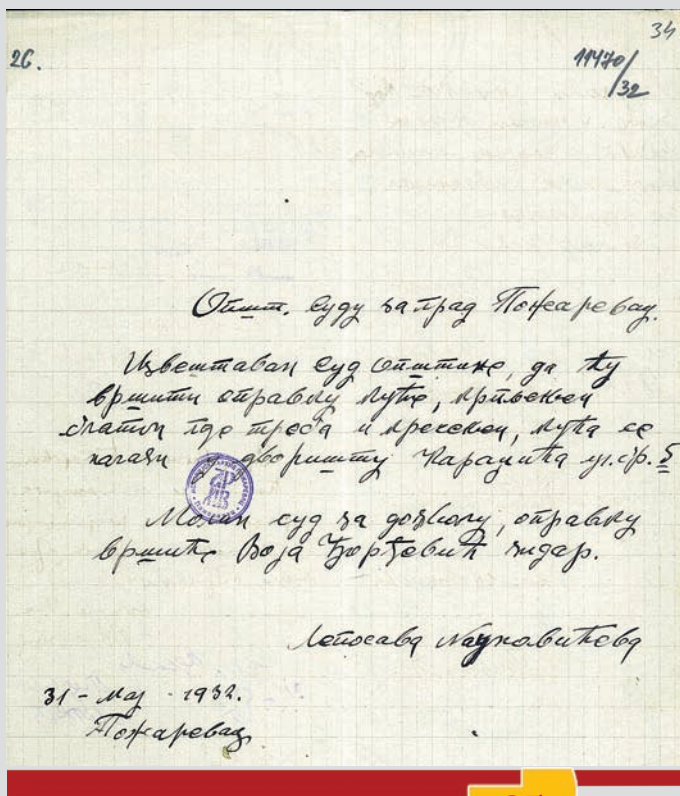 34
26.
11470/32
Општ. суду за град Пожаревац.
Извештавам суд општине, да ћу
вршити оправку куће,
блатом где треба и кречењем, кућа се
налази у дворишту Караџића ул. бр. 5
Молим суд за дозволу, оправку
вршиће Воја Ђорђевић зидар.
Лепосава
31 - Мај - 1932.
Пожаревац